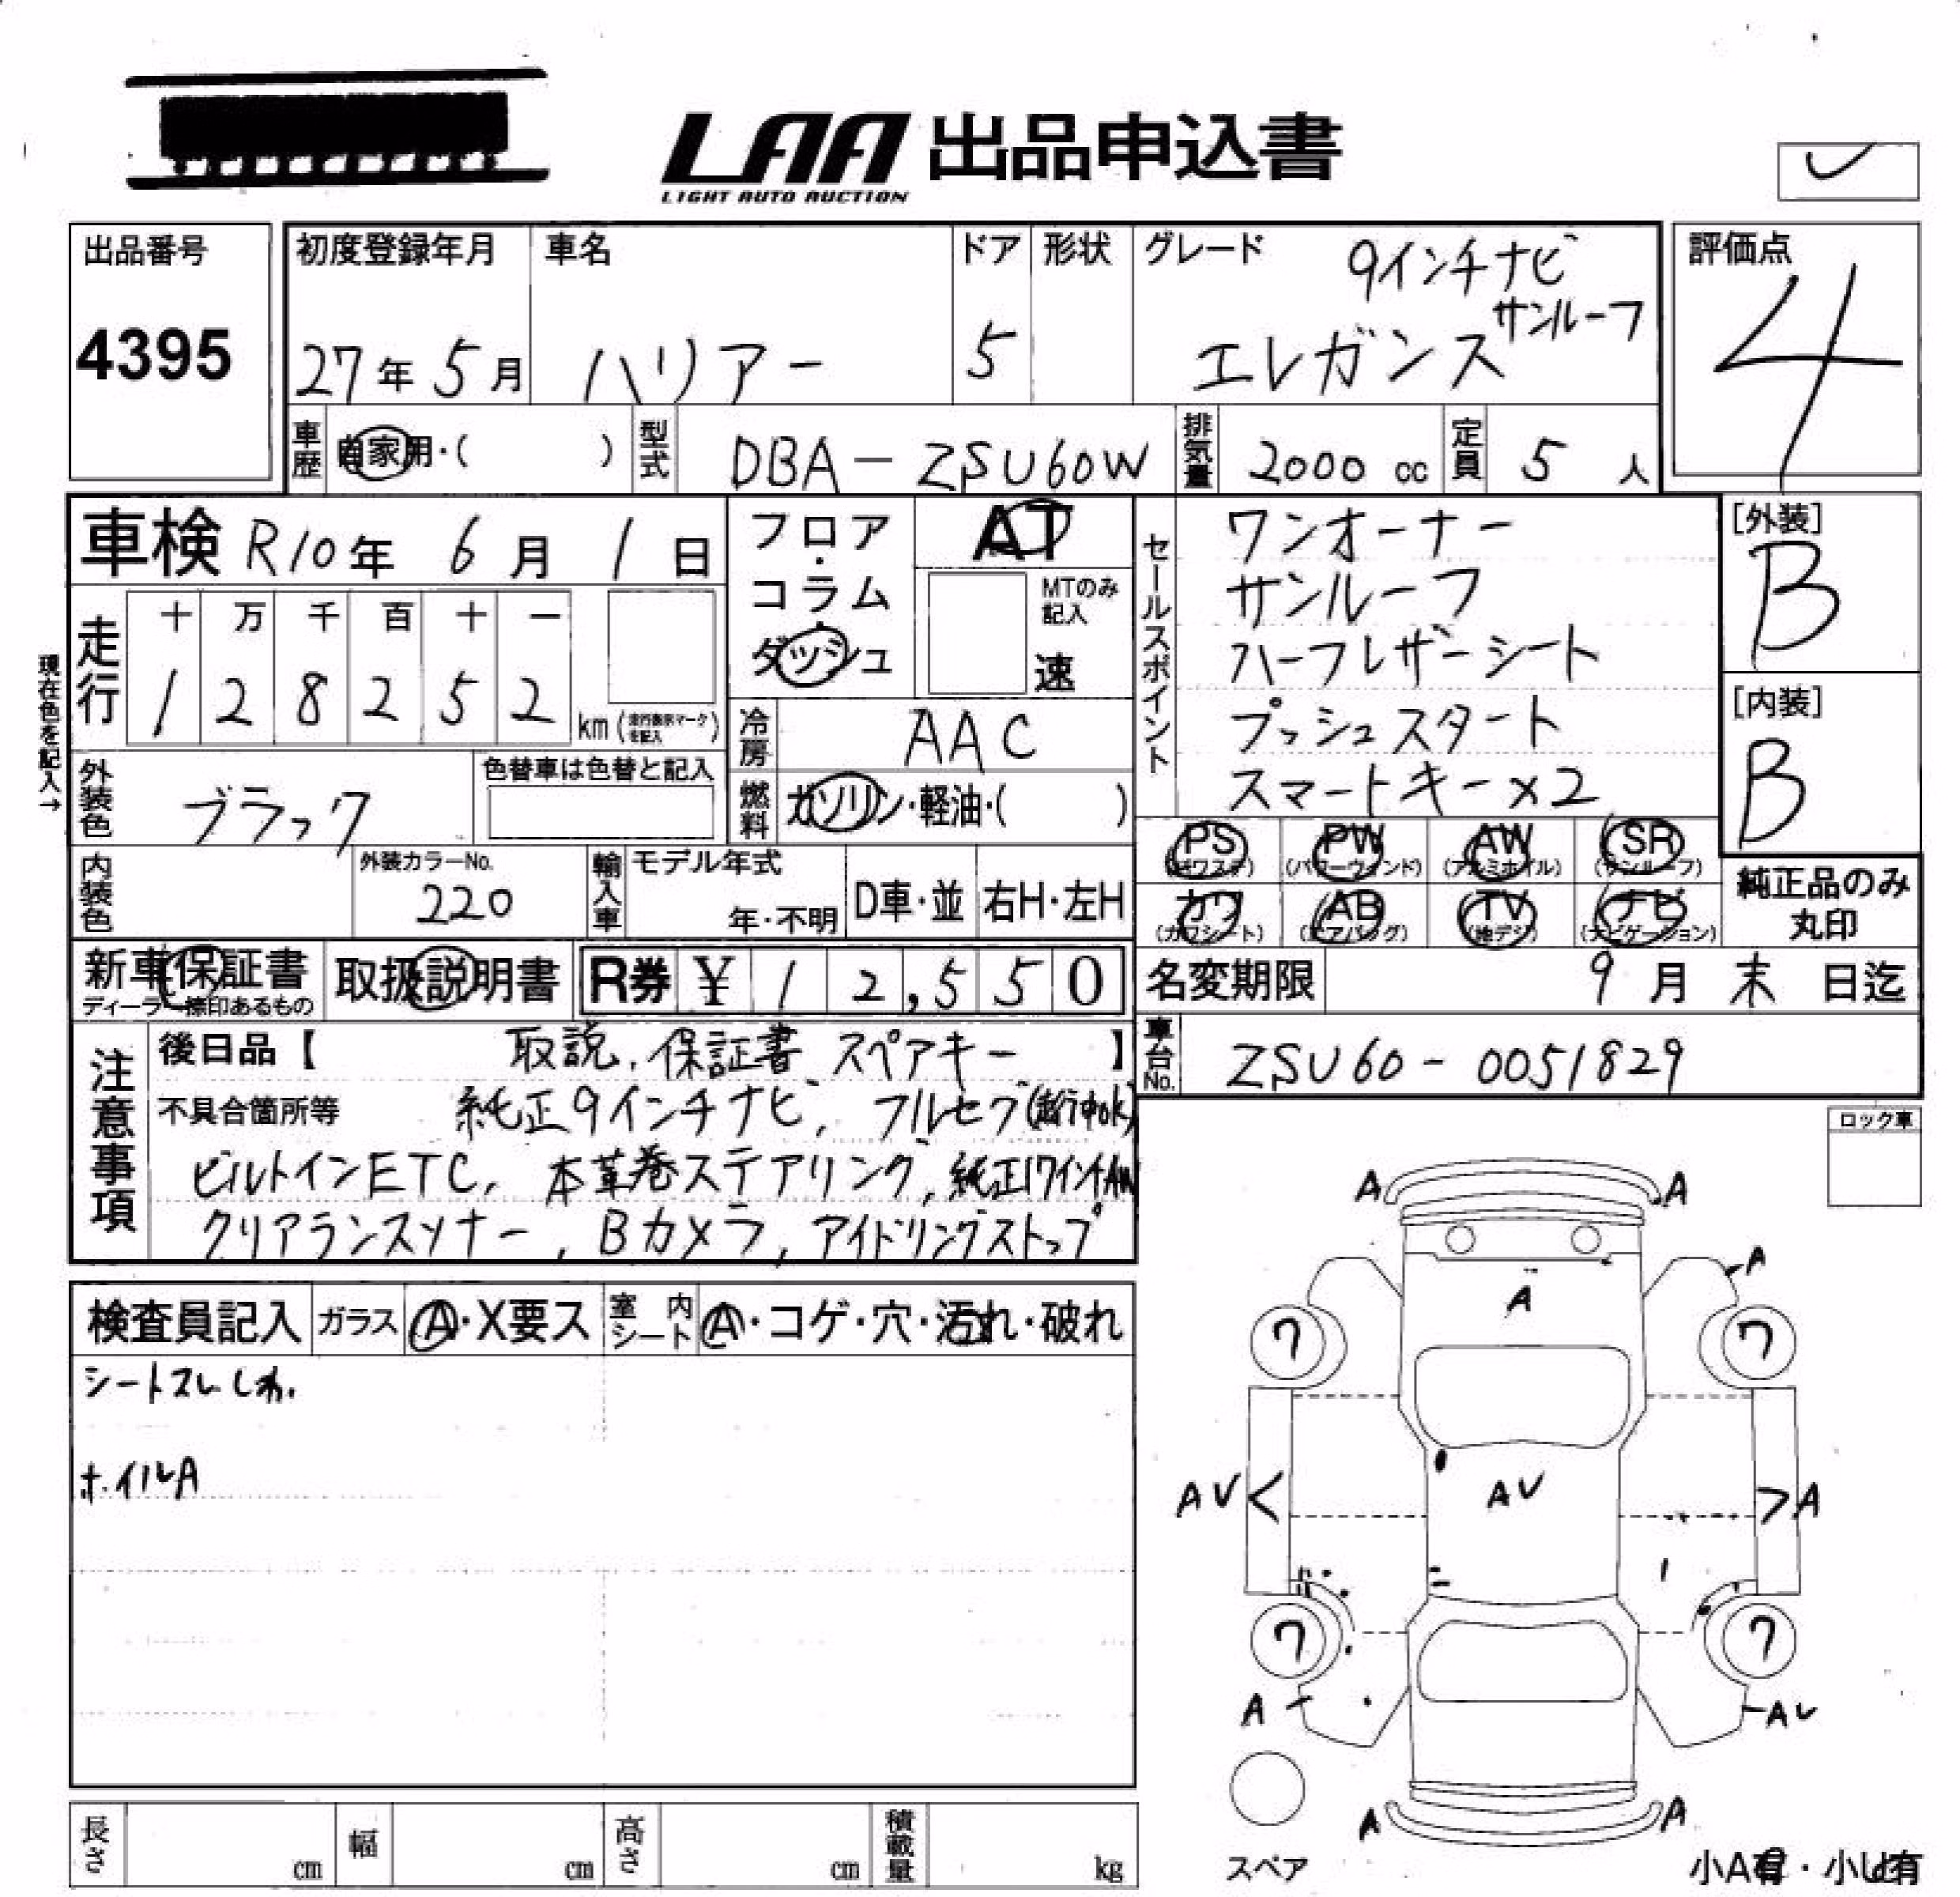 LAA 出品申込書
LIGHT AUTO AUCTION
出品番号
4395
初度登録年月
27年5月
車名
ハリアー
ドア
5
形状
グレード
9インチナビ
サンルーフ
エレガンス
評価点
4
車歴
自家用・( )
型式
DBA-ZSU60W
排気量
2000 cc
定員
5 人
車検 R10年 6月 1日
フロア・コラム・ダッシュ
AT
MTのみ記入
速
セールスポイント
ワンオーナー
サンルーフ
ハーフレザーシート
プッシュスタート
スマートキー×2
[外装]
B
[内装]
B
現在色を記入→
走行
十 万 千 百 十 一
1 2 8 2 5 2 km (走行表示マークを記入)
冷房
AAC
燃料
ガソリン・軽油・( )
外装色
ブラック
色替車は色替と記入
内装色
外装カラーNo.
220
輸入車
モデル年式
年・不明
D車・並
右H・左H
PS (パワステ)
PW (パワーウィンド)
AW (アルミホイル)
SR (サンルーフ)
カワ (カワシート)
AB (エアバッグ)
TV (地デジ)
ナビ (ナビゲーション)
純正品のみ丸印
新車保証書
ディーラー捺印あるもの
取扱説明書
R券 ¥ 1 2,5 5 0
名変期限 9月 末 日迄
車台No.
ZSU60-0051829
注意事項
後日品【 取説、保証書 スペアキー 】
不具合箇所等 純正9インチナビ、フルセグ(走行中ok)
ビルトインETC、本革巻ステアリング、純正17インチAW
クリアランスソナー、Bカメラ、アイドリングストップ
ロック車
検査員記入
ガラス
A・X要ス
室内シート
A・コゲ・穴・汚れ・破れ
シートスレ しわ.
ホイルA
A A
A
A
ワ ワ
AV A
AV
ワ ワ
A AV
A A
スペア
小A有・小U有
長さ cm
幅 cm
高さ cm
積載量 kg